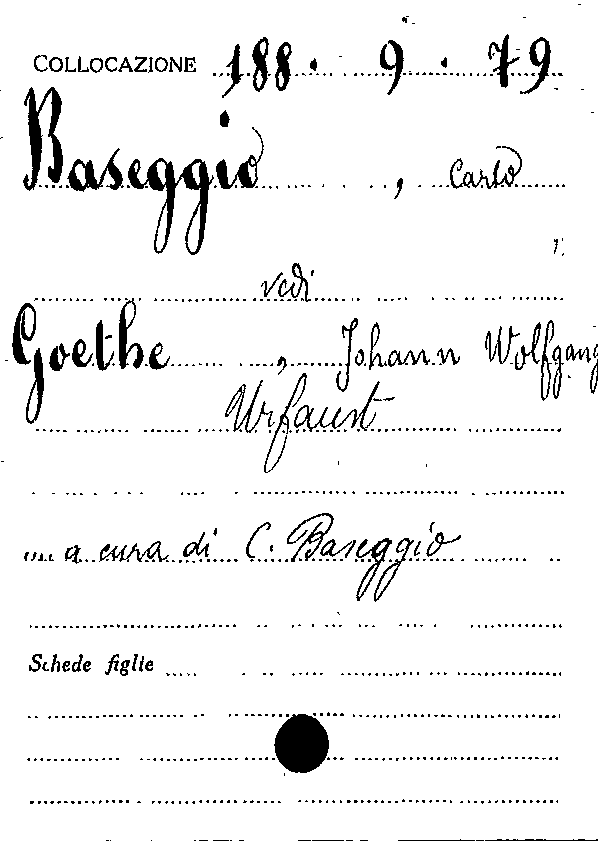 COLLOCAZIONE 188 · 9 · 79
Baseggio, Carlo
vedi
Goethe, Johann Wolfgang
Urfaust
... a cura di C. Baseggio
Schede figlie